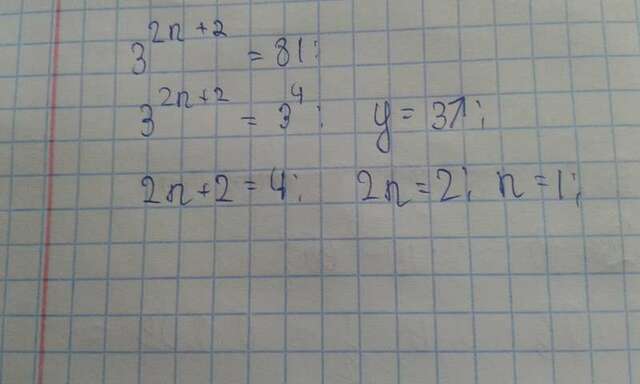 3^{2n+2} = 81;
3^{2n+2} = 3^4; y = 37;
2n+2 = 4; 2n = 2; n = 1;